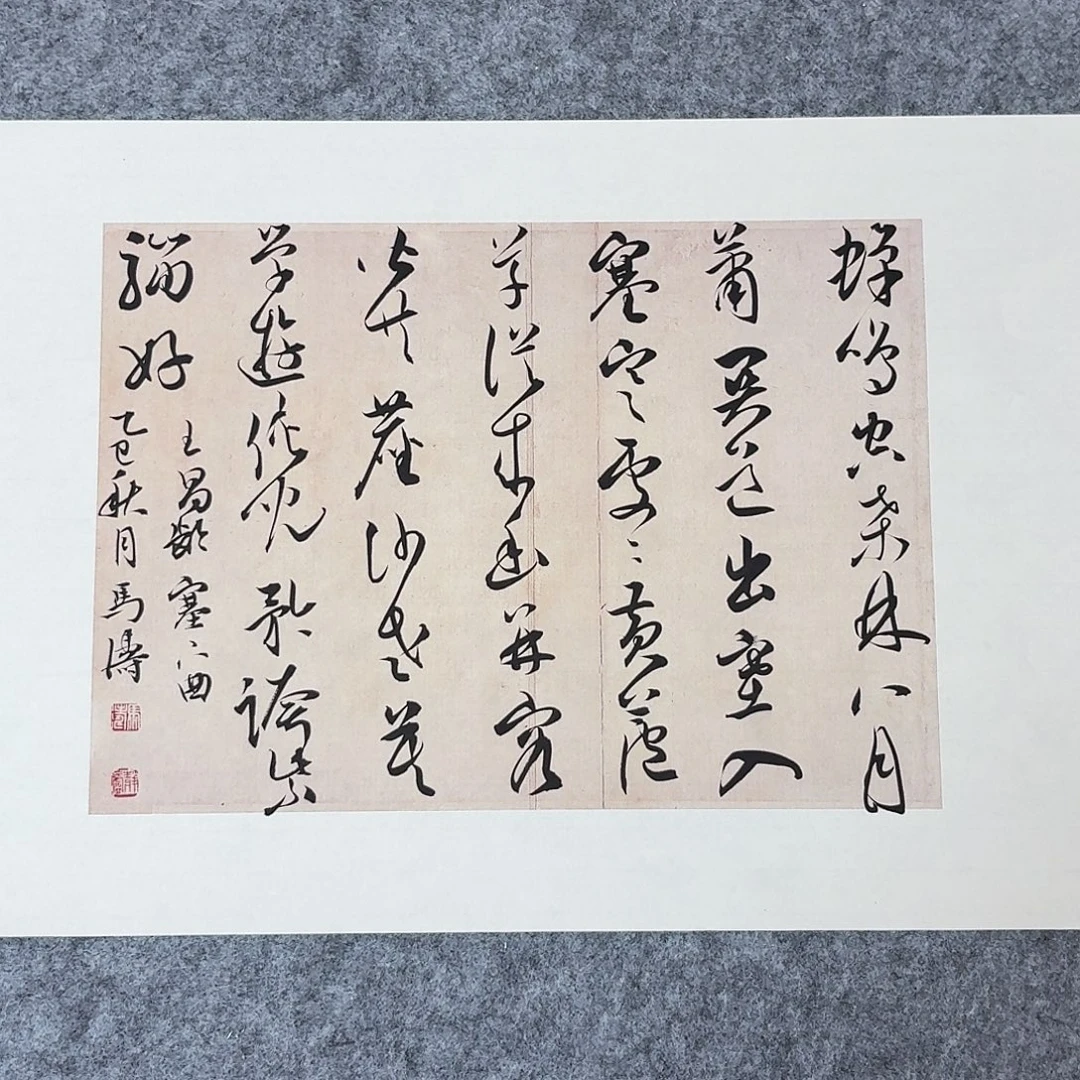 蟬鳴空桑林八月
蕭關道出塞入
塞寒處々黄蘆
草從來幽并客
皆共塵沙老莫
學遊俠兒矜誇紫
騮好
王昌齡塞下曲
乙巳秋月馬濤